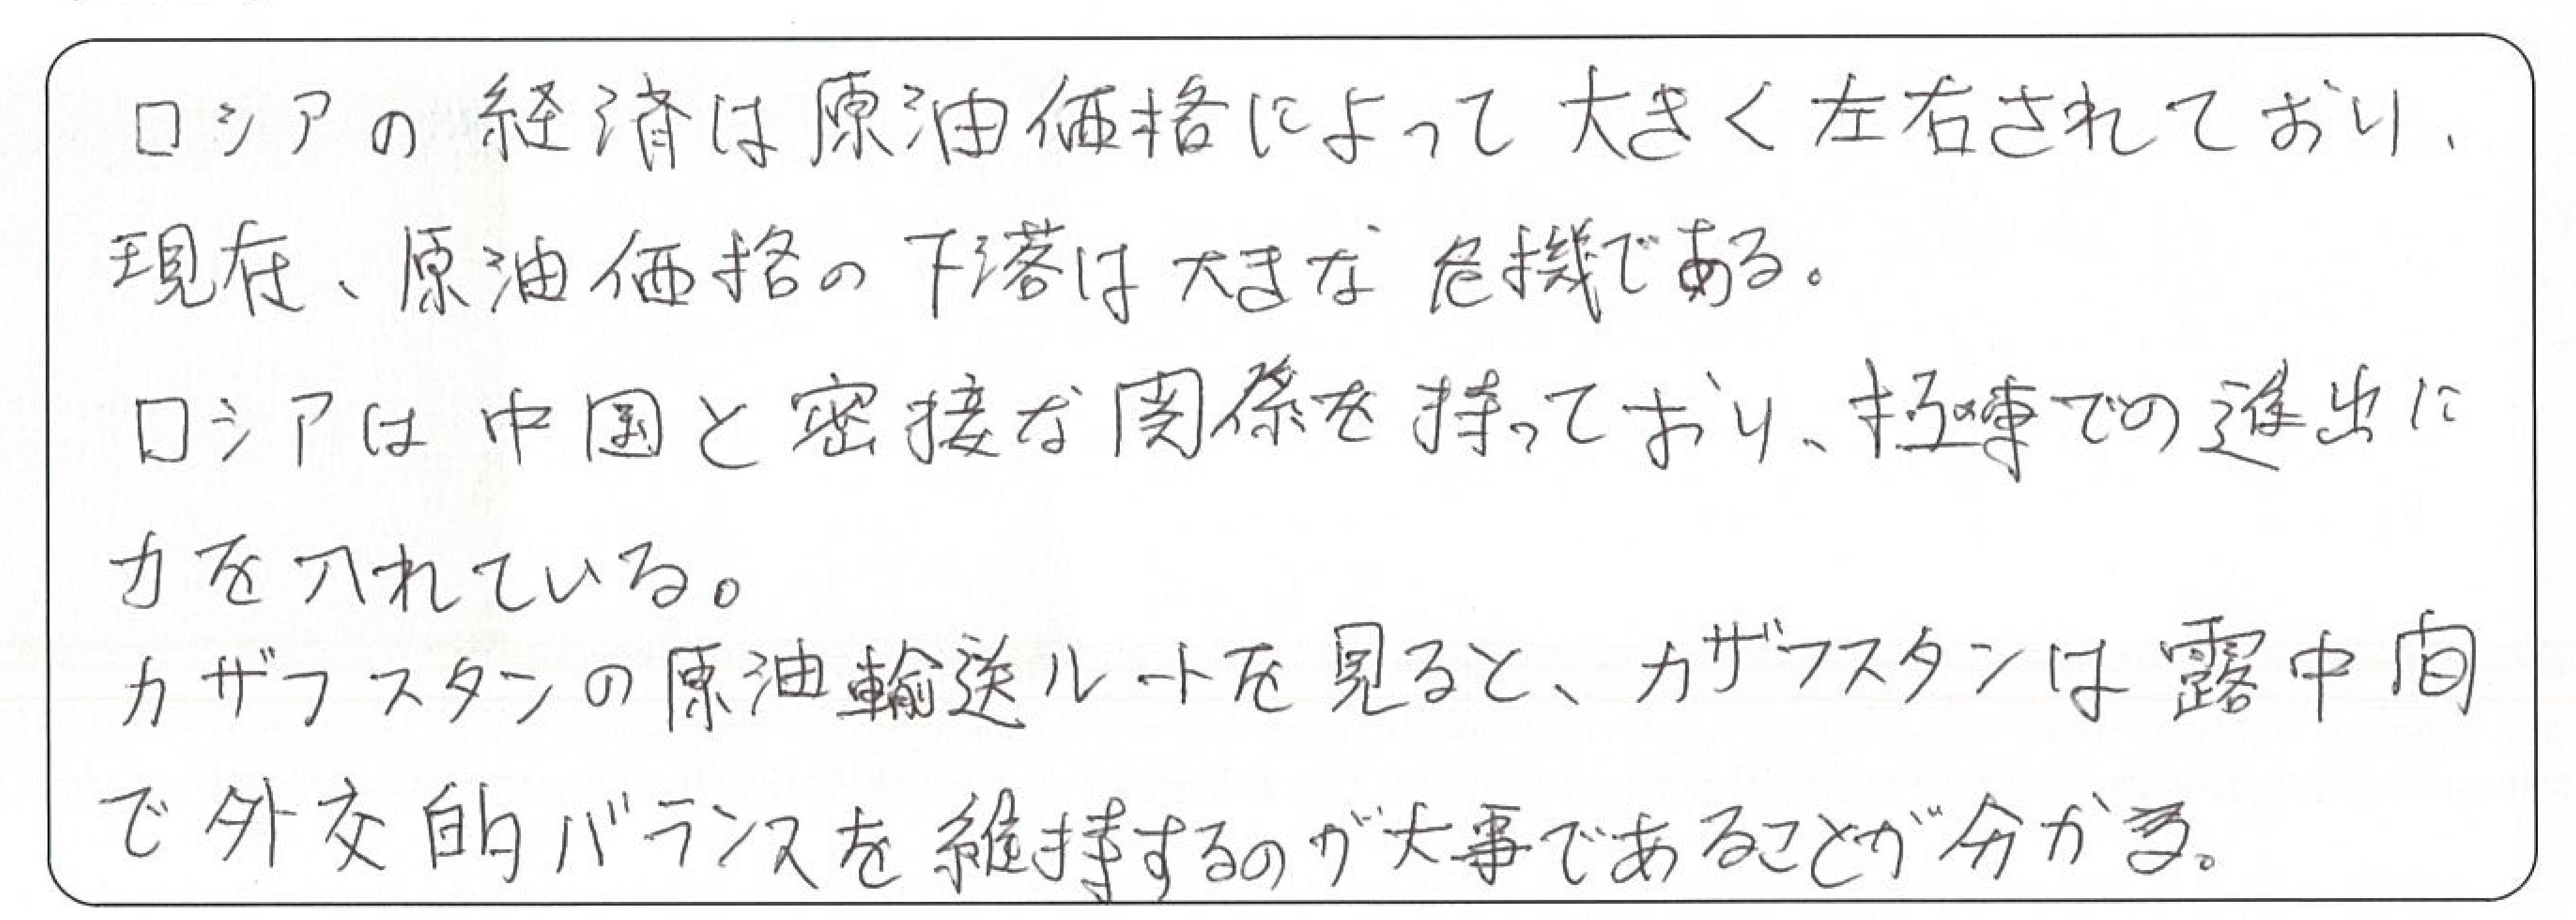 ロシアの経済は原油価格によって大きく左右されており、
現在、原油価格の下落は大きな危機である。
ロシアは中国と密接な関係を持っており、極東での進出に
力を入れている。
カザフスタンの原油輸送ルートを見ると、カザフスタンは露中間
で外交的バランスを維持するのが大事であることが分かる。